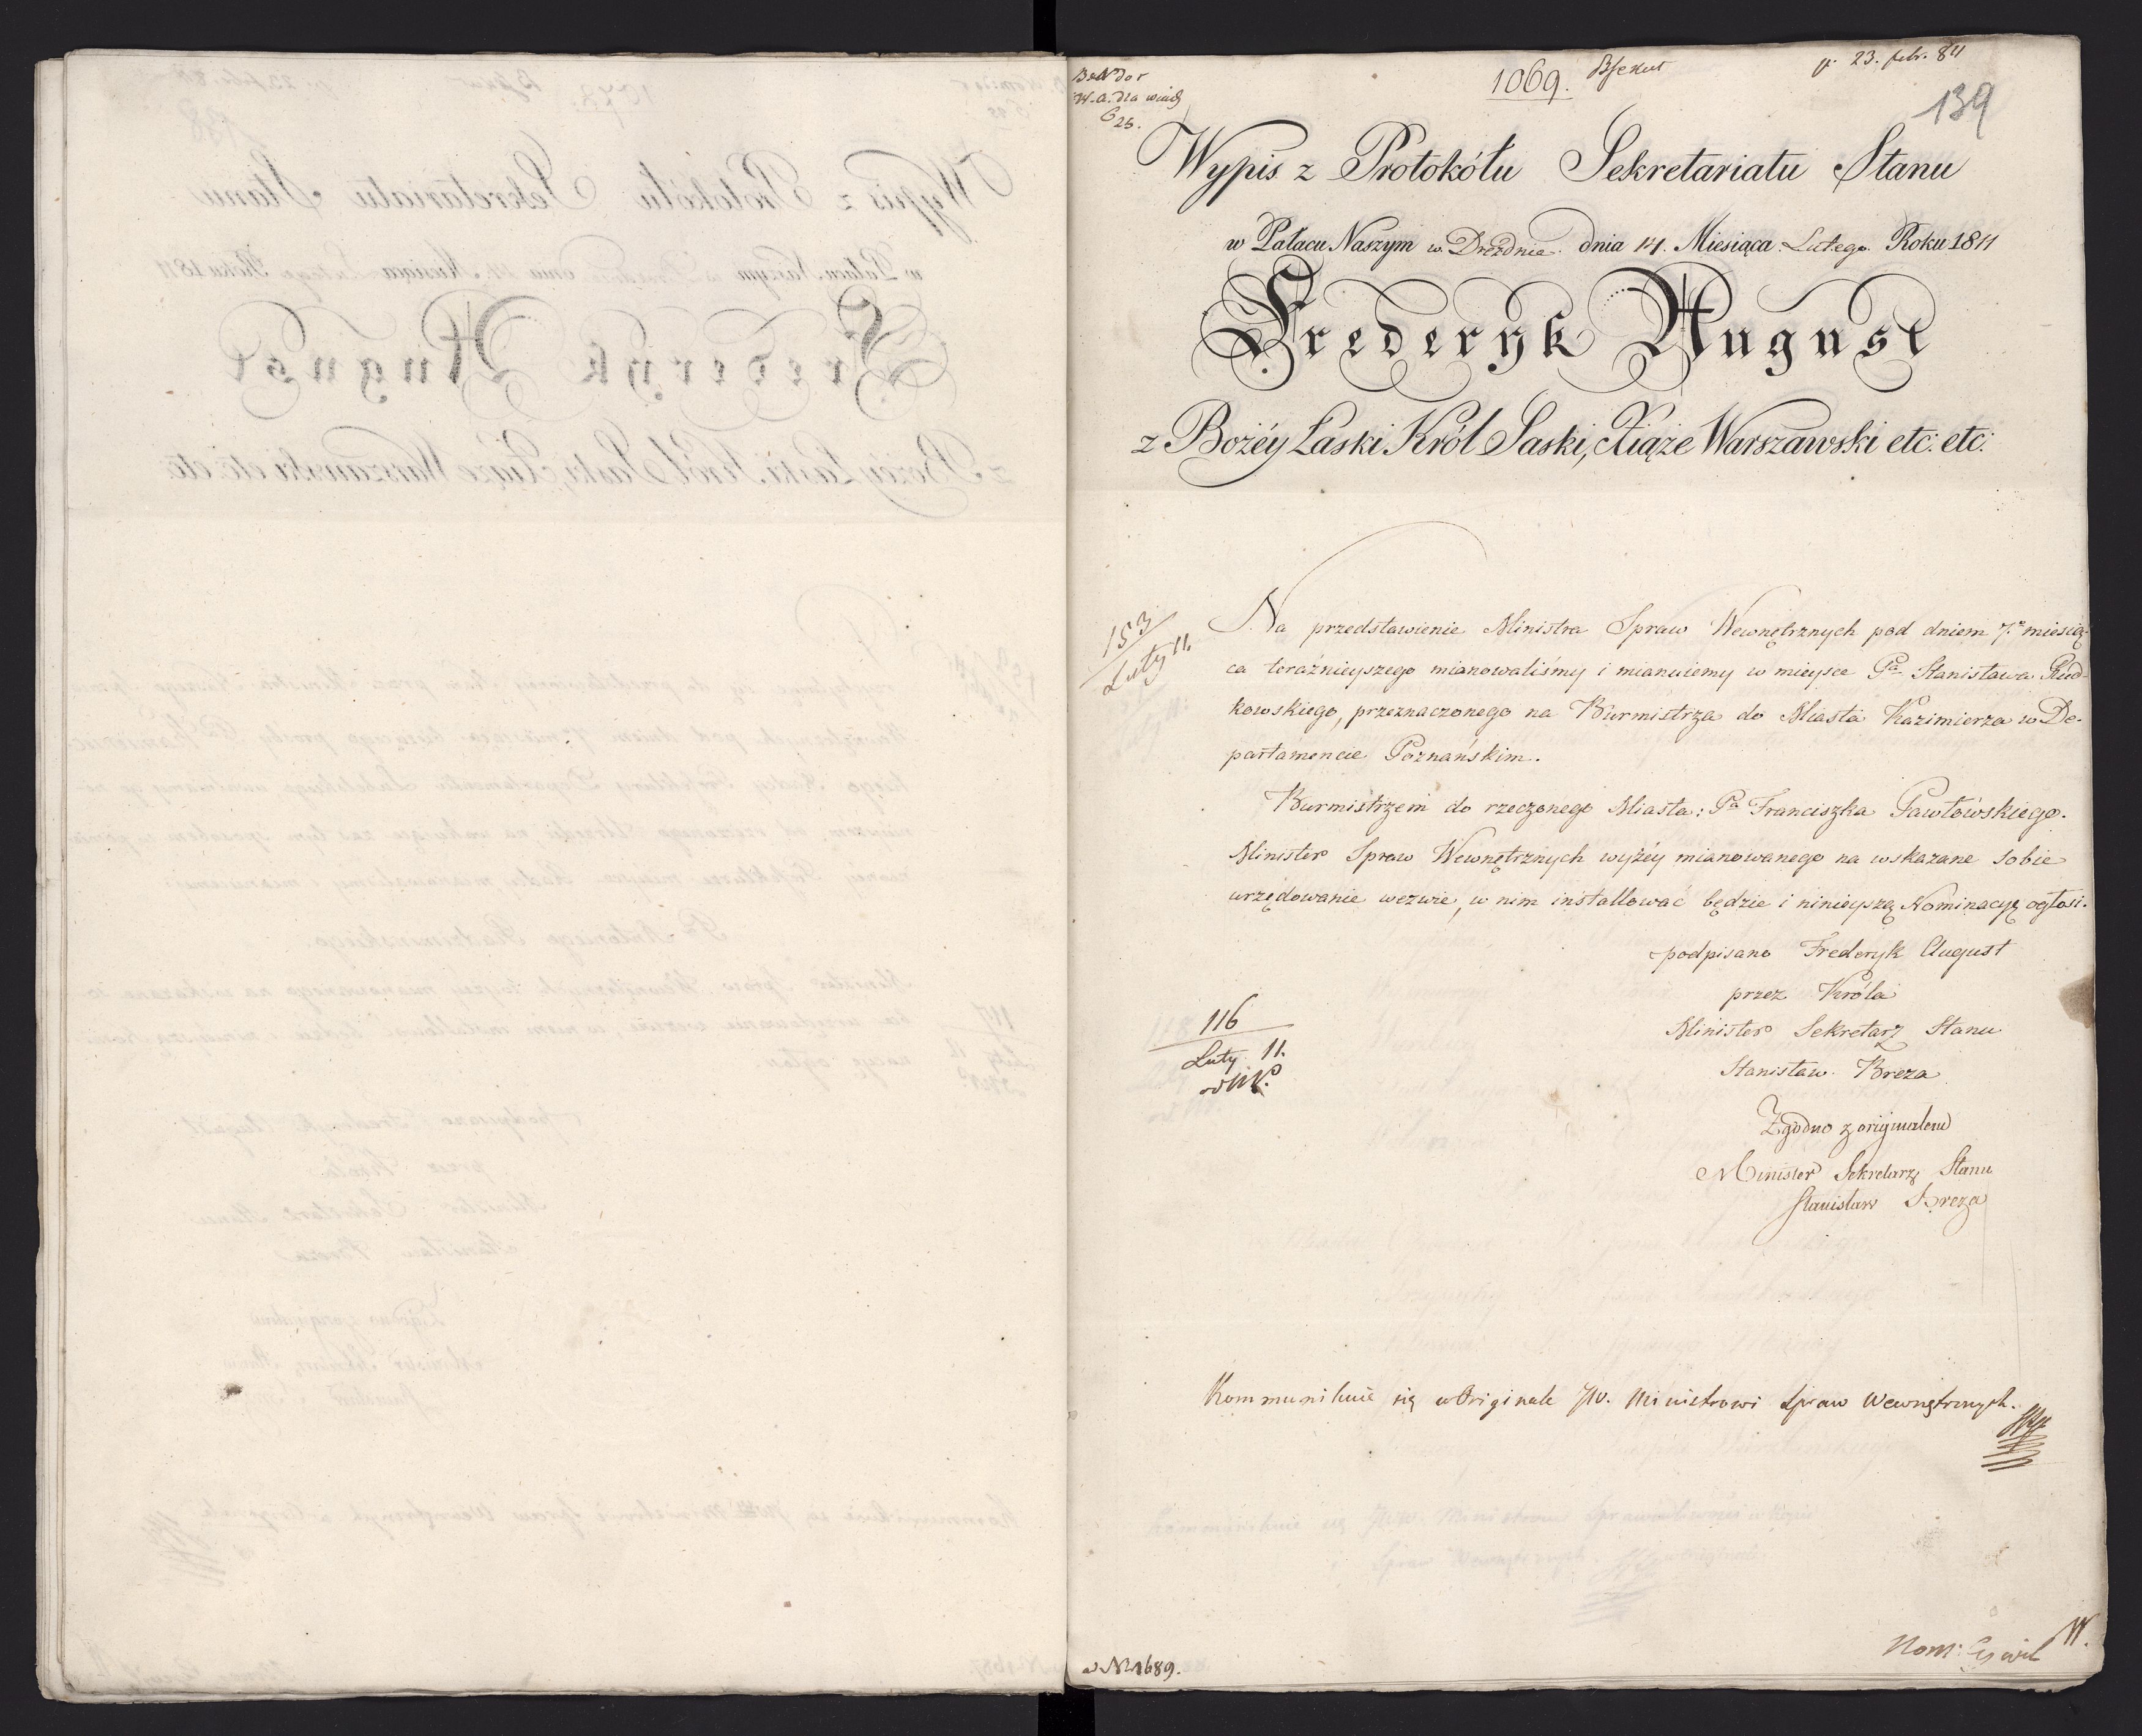 1069.
139
Wypis z Protokółu Sekretariatu Stanu
w Pałacu Naszym w Dreźdnie dnia 14. Miesiąca Lutego Roku 1811
Frederyk August
z Bożéy Łaski Król Saski, Xiąże Warszawski etc: etc:
153
Luty 11.
Na przedstawienie Ministra Spraw Wewnętrznych pod dniem 7. miesią-
ca teraźnieyszego mianowaliśmy i mianuiemy w mieysce Pa Stanisława Rud-
kowskiego, przeznaczonego na Burmistrza do Miasta Kazimierza w De-
partamencie Poznańskim.
Burmistrzem do rzeczonego Miasta: Pa Franciszka Pawłowskiego.
Minister Spraw Wewnętrznych wyżéy mianowanego na wskazane sobie
urzędowanie wezwie, w nim installować będzie i ninieyszą Nominacyą ogłosi.
podpisano Frederyk August
przez Króla
Minister Sekretarz Stanu
Stanisław Breza
116
Luty 11.
Zgodno z originalem
Minister Sekretarz Stanu
Stanisław Breza
Kommunikuie się w Originale JW. Ministrowi Spraw Wewnętrznych.
Nom: Cywil
W.
N 1689.